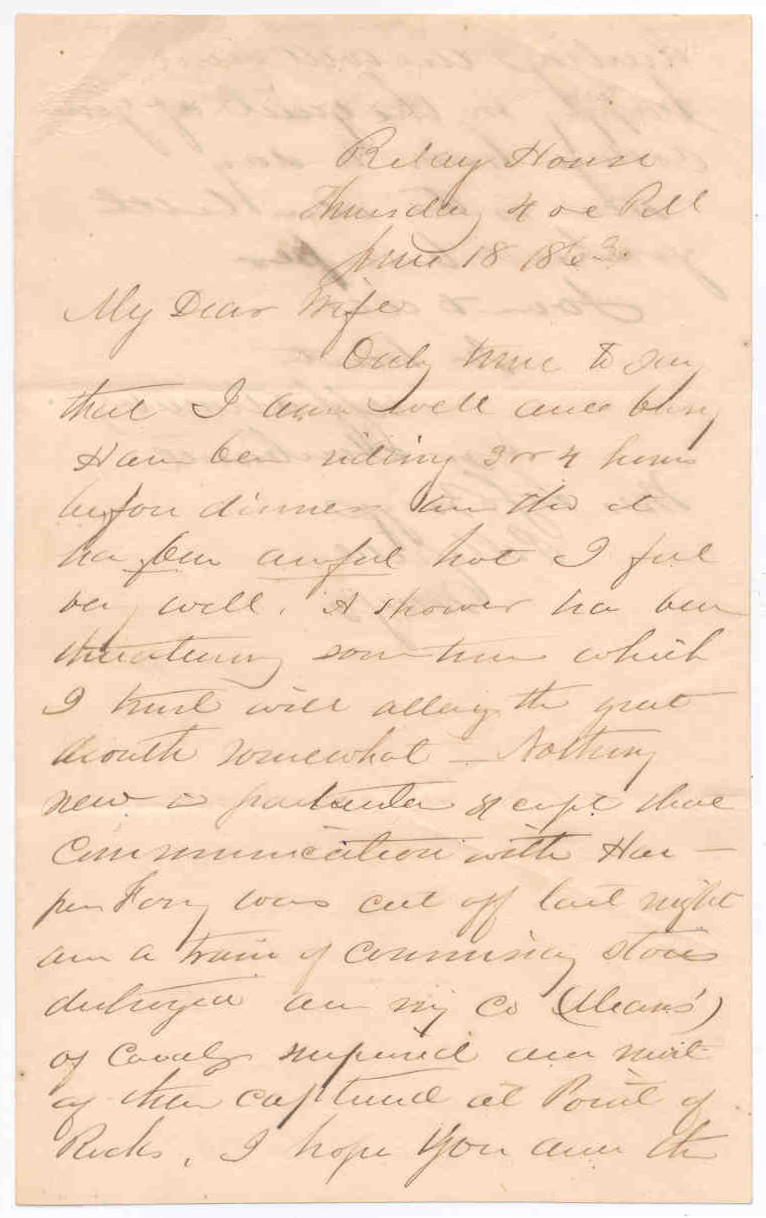 Relay House
Thursday 4 oc P.M
June 18 1863.
My Dear Wife
Only time to say
that I am well and busy
Have been riding 3 or 4 hours
before dinner and tho it
has been awful hot I feel
very well. A shower has been
threatening some time which
I trust will allay the great
drouth somewhat – Nothing
new in particular except that
communication with Har –
pers Ferry was cut off last night
and a train of commissary stores
destroyed and my Co (Means')
of Cavalry surprised and most
of them captured at Point of
Rocks. I hope you and the